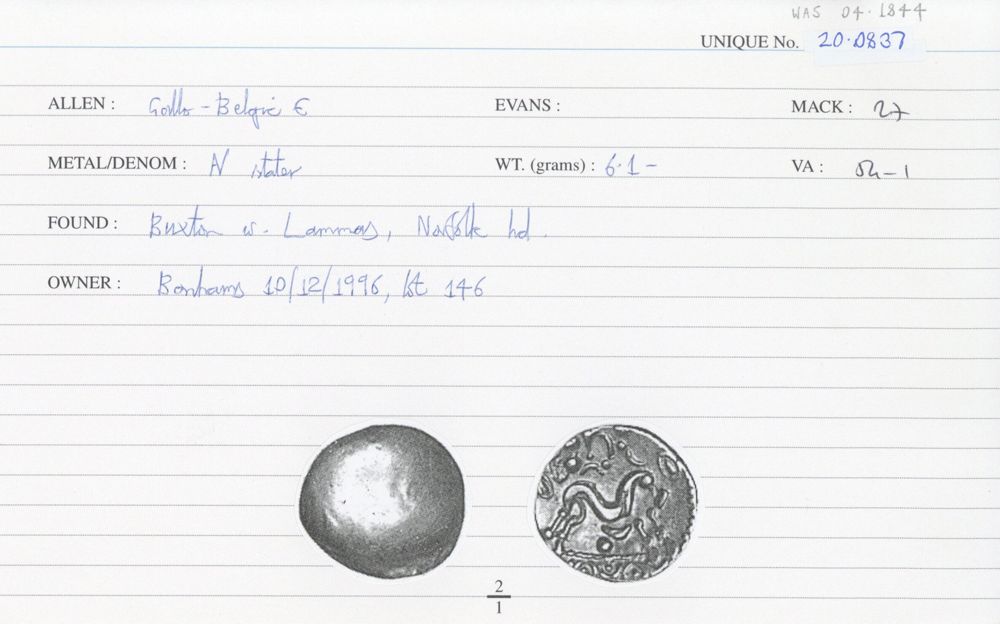 WAS 04·1844
UNIQUE No. 20·0837
ALLEN : Gallo-Belgic E EVANS : MACK : 27
METAL/DENOM : N stater WT. (grams) : 6·1- VA : 54-1
FOUND : Buxton w. Lammas, Norfolk hd.
OWNER : Bonhams 10/12/1996, lot 146
2
1